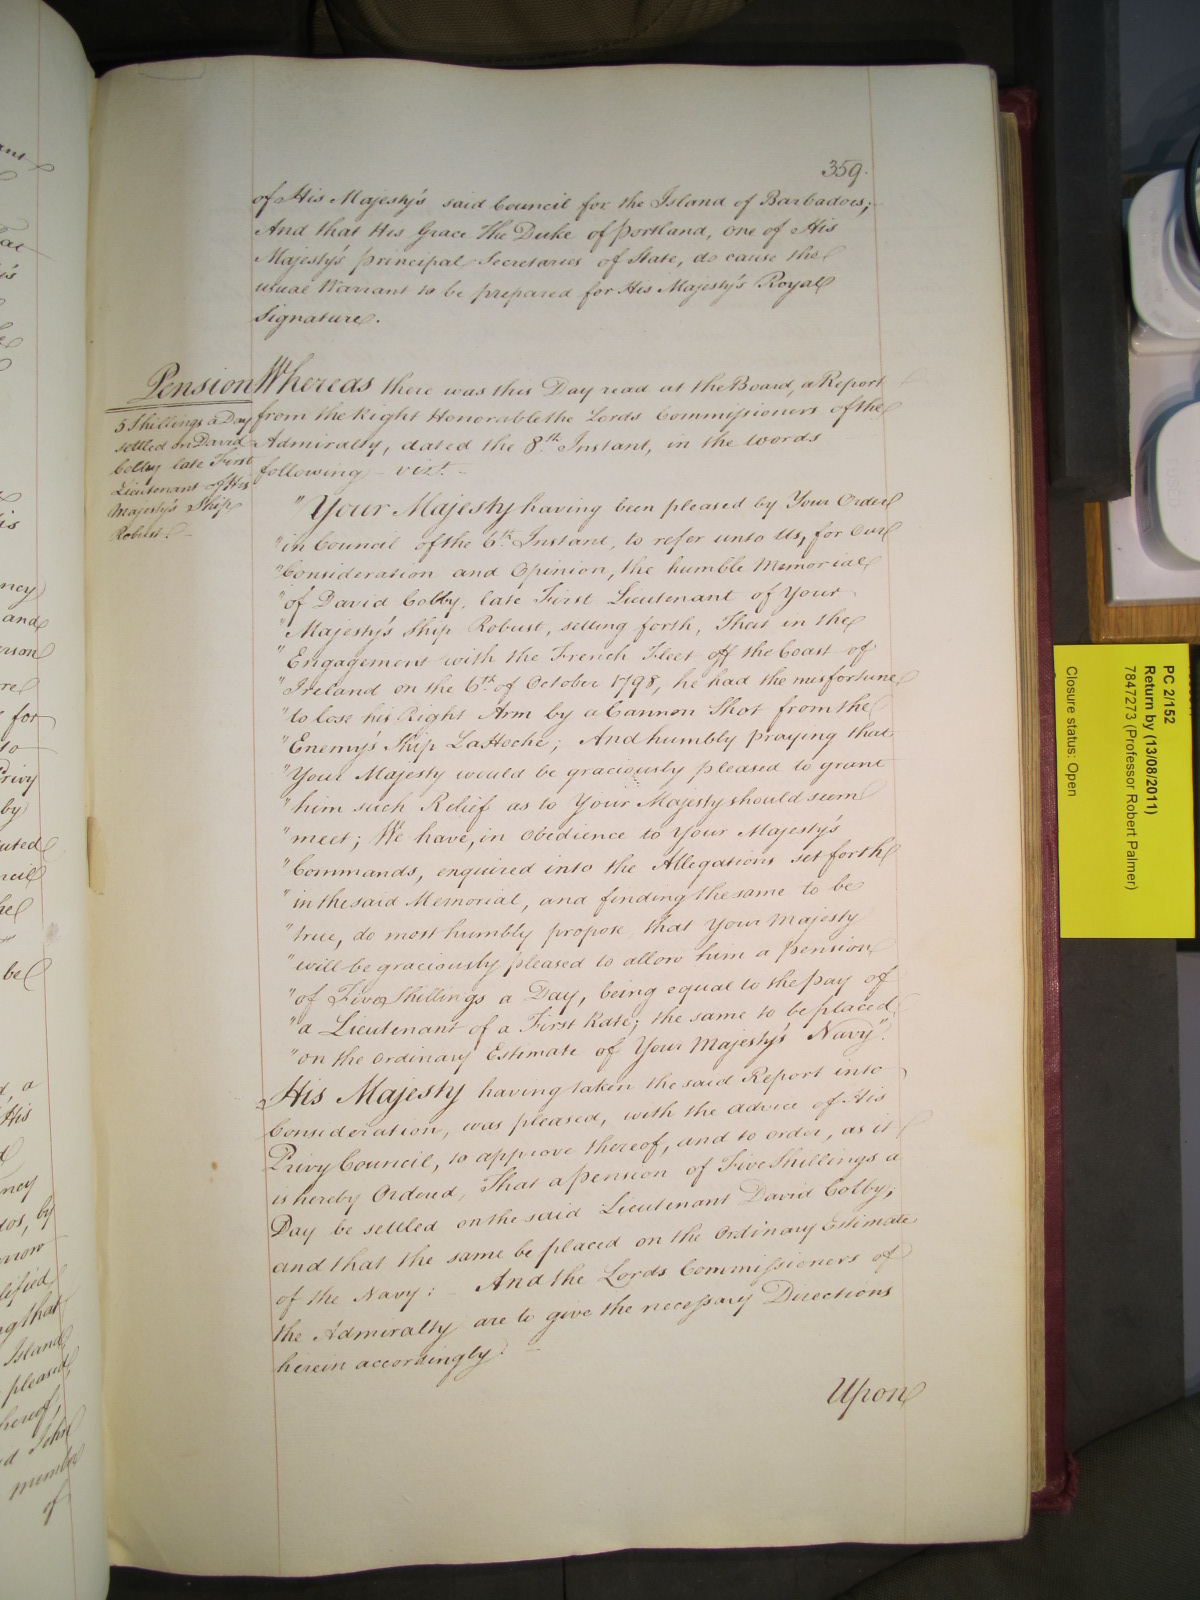 359.
of His Majesty's said Council for the Island of Barbadoes;
And that His Grace the Duke of Portland, one of His
Majesty's principal Secretaries of State, do cause the
usual Warrant to be prepared for His Majesty's Royal
Signature.
Pension
5 Shillings a Day
settled on David
Colby late First
Lieutenant of His
Majesty's Ship
Robust.
Whereas there was this Day read at the Board, a Report
from the Right Honorable the Lords Commissioners of the
Admiralty, dated the 8th Instant, in the words
following - vizt. -
"Your Majesty having been pleased by Your Order
"in Council of the 6th Instant, to refer unto Us, for Our
"Consideration and Opinion, the humble Memorial
"of David Colby, late First Lieutenant of Your
"Majesty's Ship Robust, setting forth, That in the
"Engagement with the French Fleet off the Coast of
"Ireland on the 6th of October 1798, he had the misfortune
"to lose his Right Arm by a Cannon Shot from the
"Enemy's Ship La Hoche; And humbly praying that
"Your Majesty would be graciously pleased to grant
"him such Relief as to Your Majesty should seem
"meet; We have, in obedience to Your Majesty's
"Commands, enquired into the Allegations set forth
"in the said Memorial, and finding the same to be
"true, do most humbly propose, that Your Majesty
"will be graciously pleased to allow him a pension
"of Five Shillings a Day, being equal to the pay of
"a Lieutenant of a First Rate; the same to be placed
"on the Ordinary Estimate of Your Majesty's Navy".
His Majesty having taken the said Report into
Consideration, was pleased, with the advice of His
Privy Council, to approve thereof, and to order, as it
is hereby Ordered, That a pension of Five Shillings a
Day be settled on the said Lieutenant David Colby;
and that the same be placed on the Ordinary Estimate
of the Navy: - And the Lords Commissioners of
the Admiralty are to give the necessary Directions
herein accordingly. -
Upon
PC 2/152
Return by (13/08/2011)
7847273 (Professor Robert Palmer)
Closure status: Open
ncy
and
for
to
Privy
by
be
a
His
ncy
by
Island
pleased
John
of